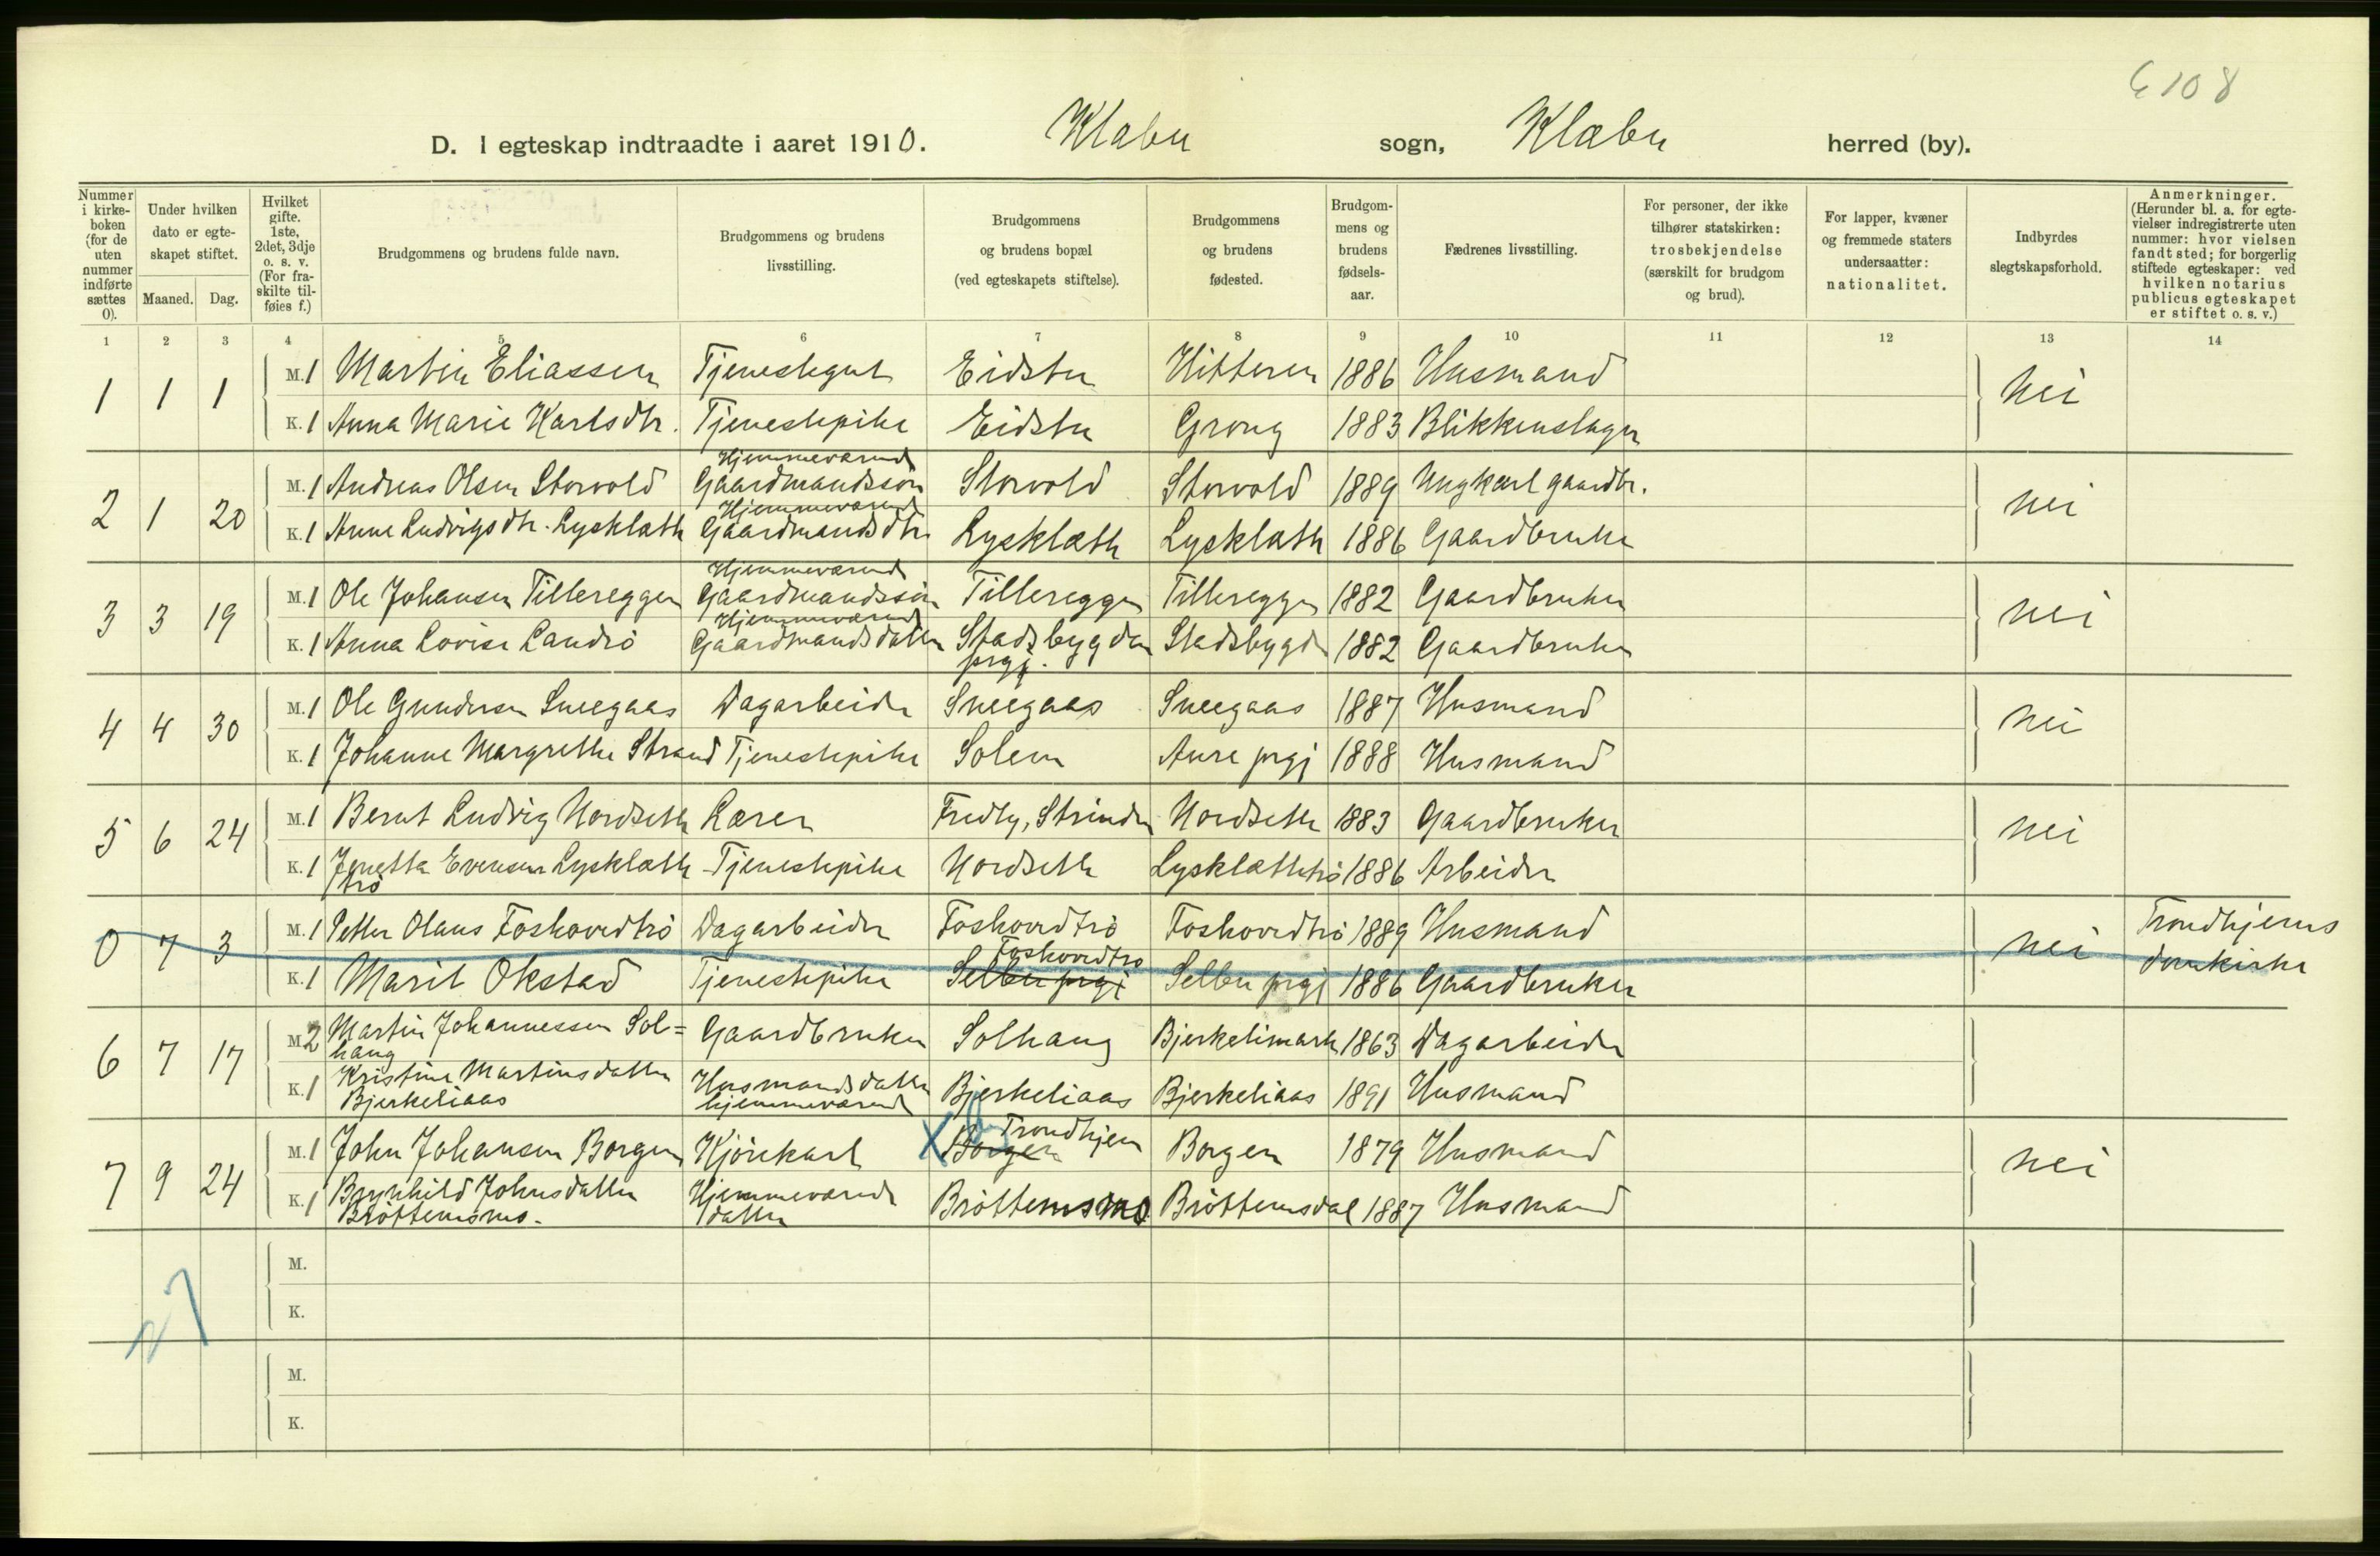 6108
D. I egteskap indtraadte i aaret 1910. Klæbu sogn, Klæbu herred (by).
Nummer i kirkeboken (for de uten nummer indførte sættes 0).
Under hvilken dato er egteskapet stiftet.
Maaned. Dag.
Hvilket gifte. 1ste, 2det, 3dje o. s. v. (For fraskilte tilføies f.)
Brudgommens og brudens fulde navn.
Brudgommens og brudens livsstilling.
Brudgommens og brudens bopæl (ved egteskapets stiftelse).
Brudgommens og brudens fødested.
Brudgommens og brudens fødselsaar.
Fædrenes livsstilling.
For personer, der ikke tilhører statskirken: trosbekjendelse (særskilt for brudgom og brud).
For lapper, kvæner og fremmede staters undersaatter: nationalitet.
Indbyrdes slegtskapsforhold.
Anmerkninger. (Herunder bl. a. for egtevielser indregistrerte uten nummer: hvor vielsen fandt sted; for borgerlig stiftede egteskaper: ved hvilken notarius publicus egteskapet er stiftet o. s. v.)
1 2 3 4 5 6 7 8 9 10 11 12 13 14
1 1 1 M. 1 Martin Eliassen Tjenestegut Eidstu Hitteren 1886 Husmand nei
K. 1 Anna Marie Karlsdtr. Tjenestepike Eidstu Grong 1883 Blikkenslager
2 1 20 M. 1 Andreas Olsen Storvold Hjemmeværende Gaardmandssøn Storvold Storvold 1889 Ungkarl gaardbr. nei
K. 1 Anne Ludvigsdtr. Lysklæth Hjemmeværende Gaardmandsdtr. Lysklæth Lysklæth 1886 Gaardbruker
3 3 19 M. 1 Ole Johansen Tillereggen Hjemmeværende Gaardmandssøn Tillereggen Tillereggen 1882 Gaardbruker nei
K. 1 Anna Lovise Landrø Hjemmeværende Gaardmandsdatter Stadsbygden prgj. Stadsbygden 1882 Gaardbruker
4 4 30 M. 1 Ole Gundersen Sneegaas Dagarbeider Sneegaas Sneegaas 1887 Husmand nei
K. 1 Johanne Margrethe Strand Tjenestepike Solem Aure prgj 1888 Husmand
5 6 24 M. 1 Bernt Ludvig Nordseth Lærer Fredly, Strinden Nordseth 1883 Gaardbruker nei
K. 1 Jenetta Evensen Lysklæth trø Tjenestepike Nordseth Lysklættrø 1886 Arbeider
0 7 3 M. 1 Petter Olaus Foshovedtrø Dagarbeider Foshovedtrø Foshovedtrø 1889 Husmand nei Trondhjems domkirke
K. 1 Marit Okstad Tjenestepike Foshovedtrø Selbu prgj Selbu prgj 1886 Gaardbruker
6 7 17 M. 2 Martin Johannessen Sol=haug Gaardbruker Solhaug Bjerkelimark 1863 Dagarbeider
K. 1 Kristine Martinsdatter Bjerkeliaas Husmandsdatter hjemmeværende Bjerkeliaas Bjerkeliaas 1891 Husmand
7 9 24 M. 1 John Johansen Borgen Kjørekarl X Trondhjem Borgen Borgen 1879 Husmand nei
K. 1 Brynhild Johnsdatter Brøttemsmo. Hjemmeværende datter Brøttemsmo Brøttemsdal 1887 Husmand
M.
K.
M.
K.